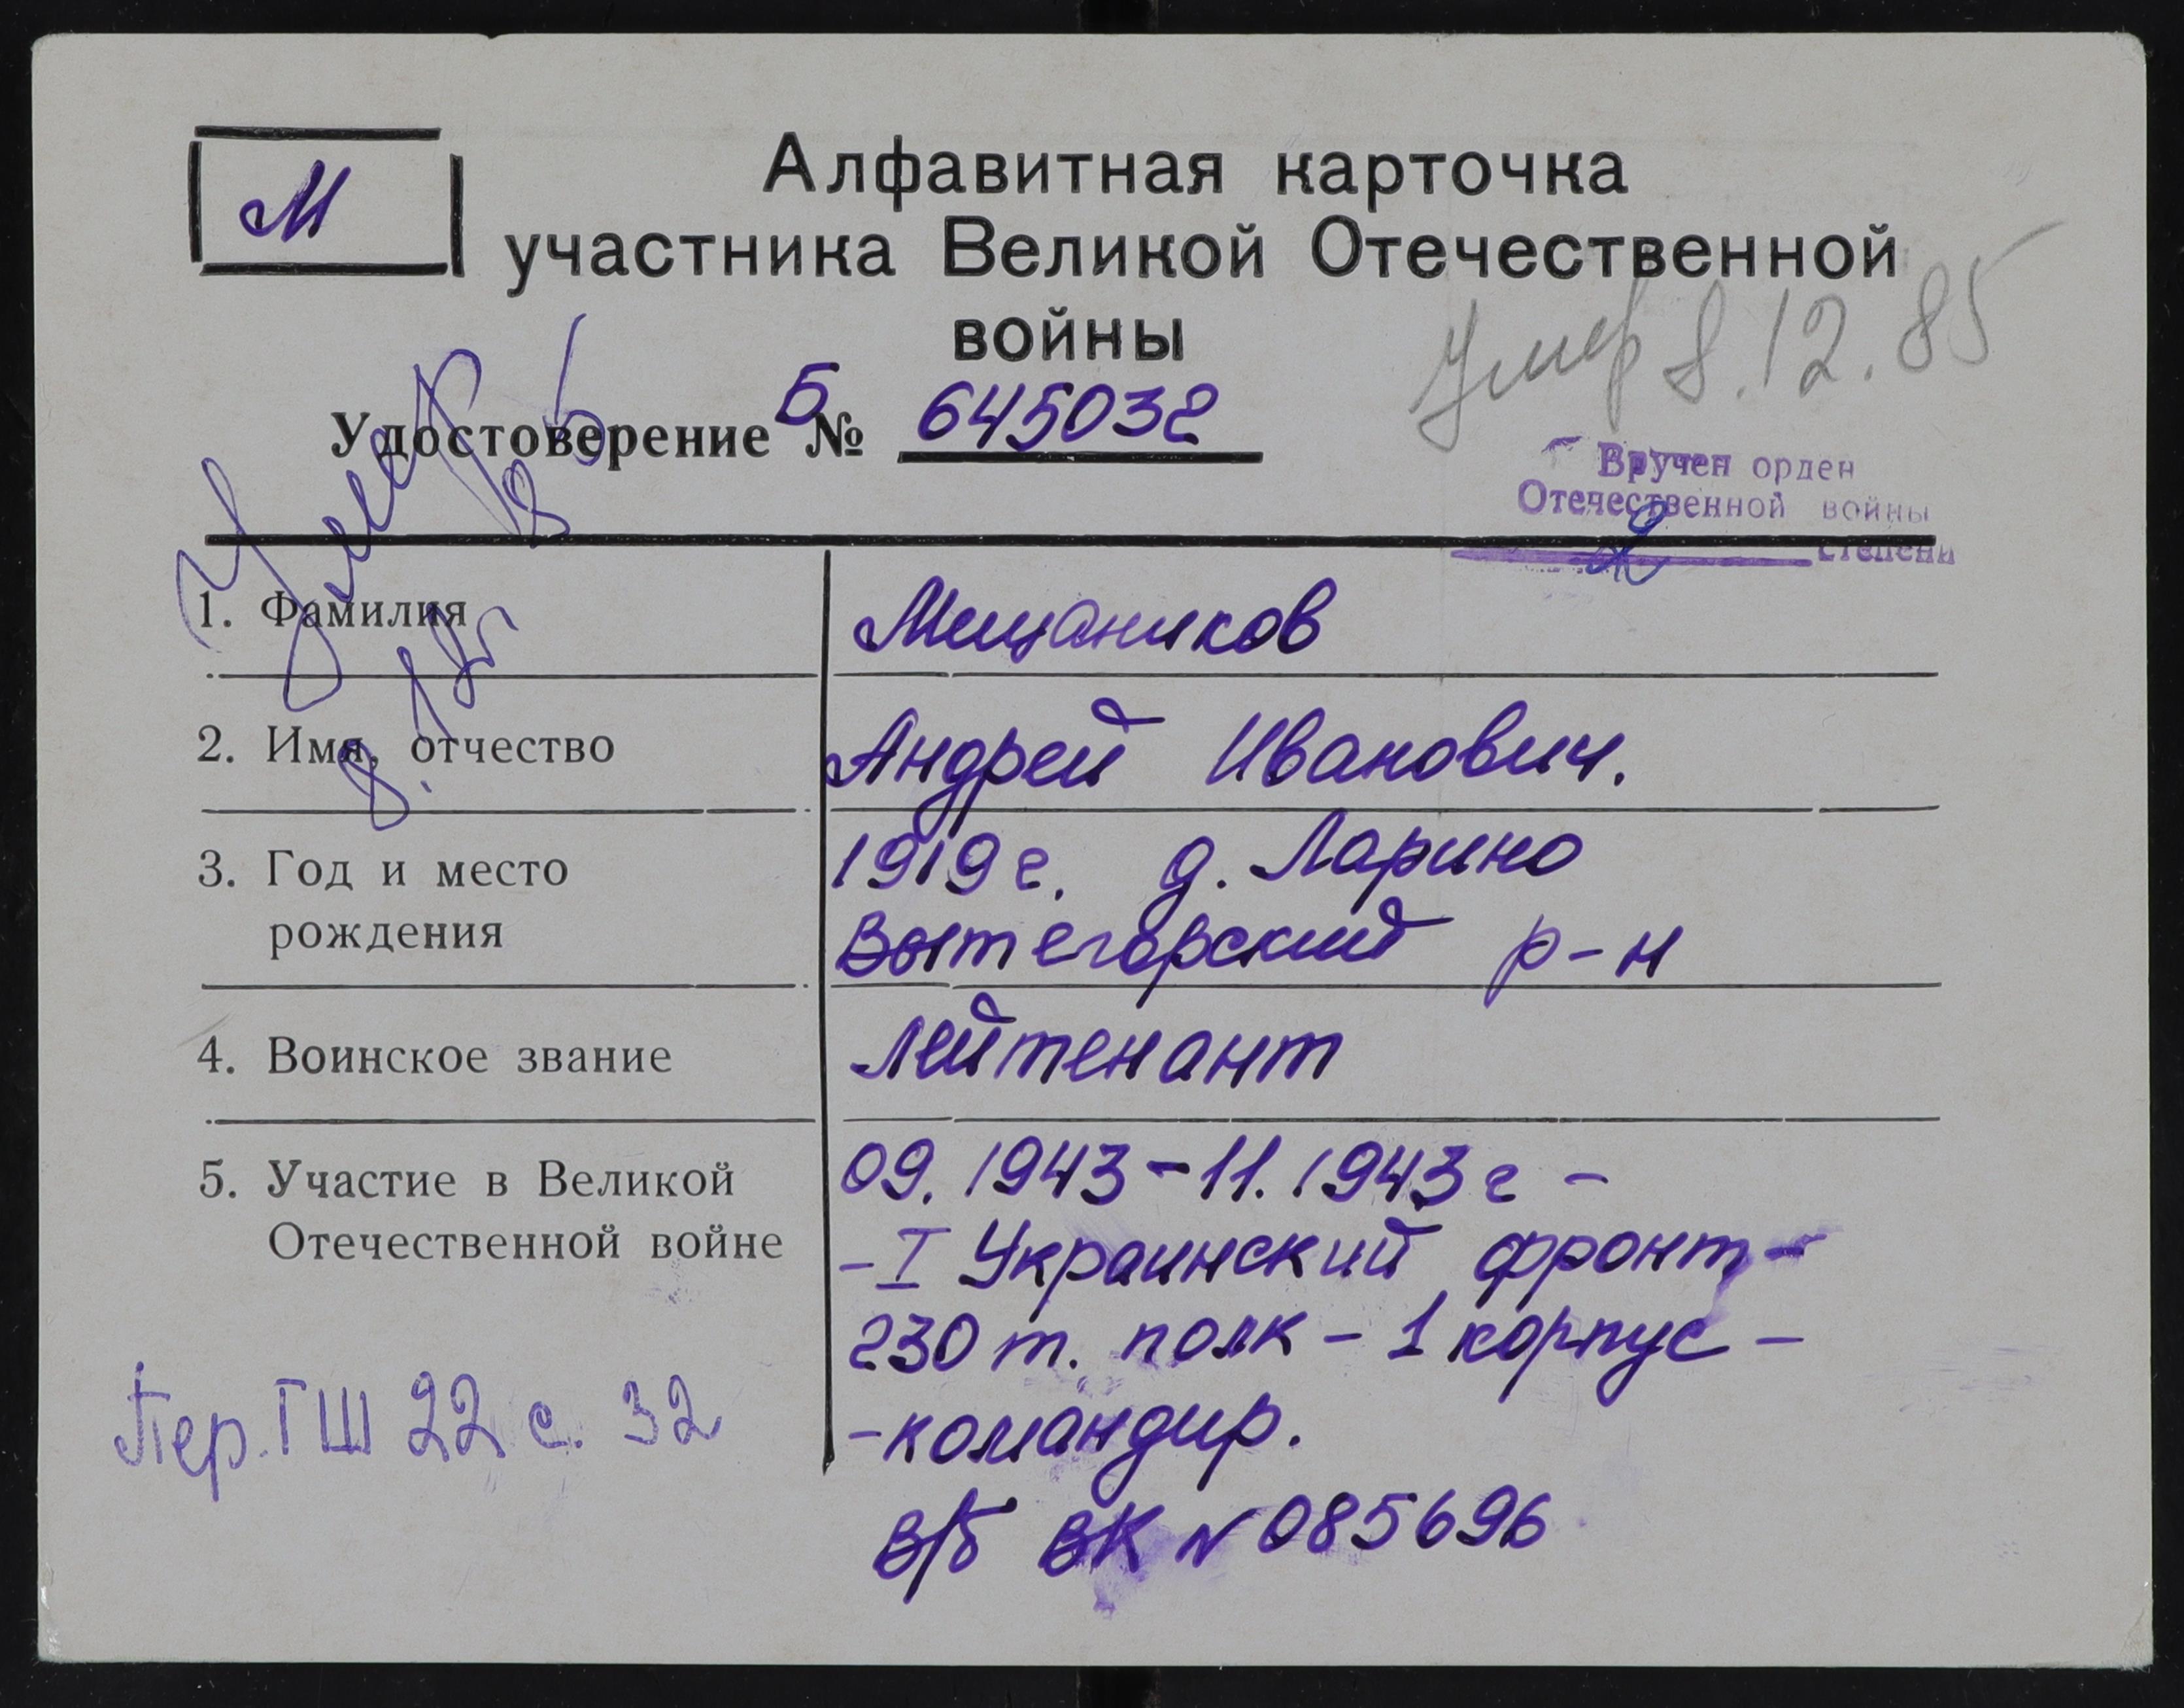 М
Алфавитная карточка
участника Великой Отечественной
войны
Умер 8.12.85
Удостоверение Б № 645032
Вручен орден
Отечественной войны
2 степени
Умер
1. Фамилия Мещаников
2. Имя, отчество Андрей Иванович.
3. Год и место 1919 г. д. Ларино
рождения Вытегорский р-н
4. Воинское звание лейтенант
5. Участие в Великой 09.1943-11.1943 г -
Отечественной войне - I Украинский фронт -
230 т. полк - 1 корпус -
- командир.
Пер. ГШ 22 с. 32
В/б ВК N 085696